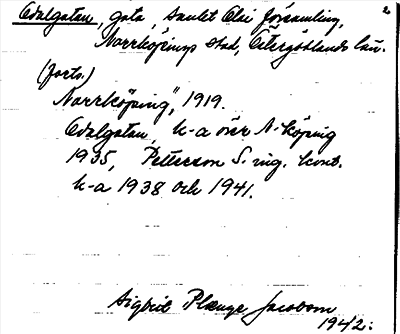 2
Odalgatan, gata, Sankt Olai församling,
Norrköpings stad, Östergötlands län.
(forts.)
Norrköping", 1919.
Odalgatan, k-a över N-köping
1935, Petterson S. ing. kont.
k-a 1938 och 1941.
Sigbrit Plænge Jacobson
1942.